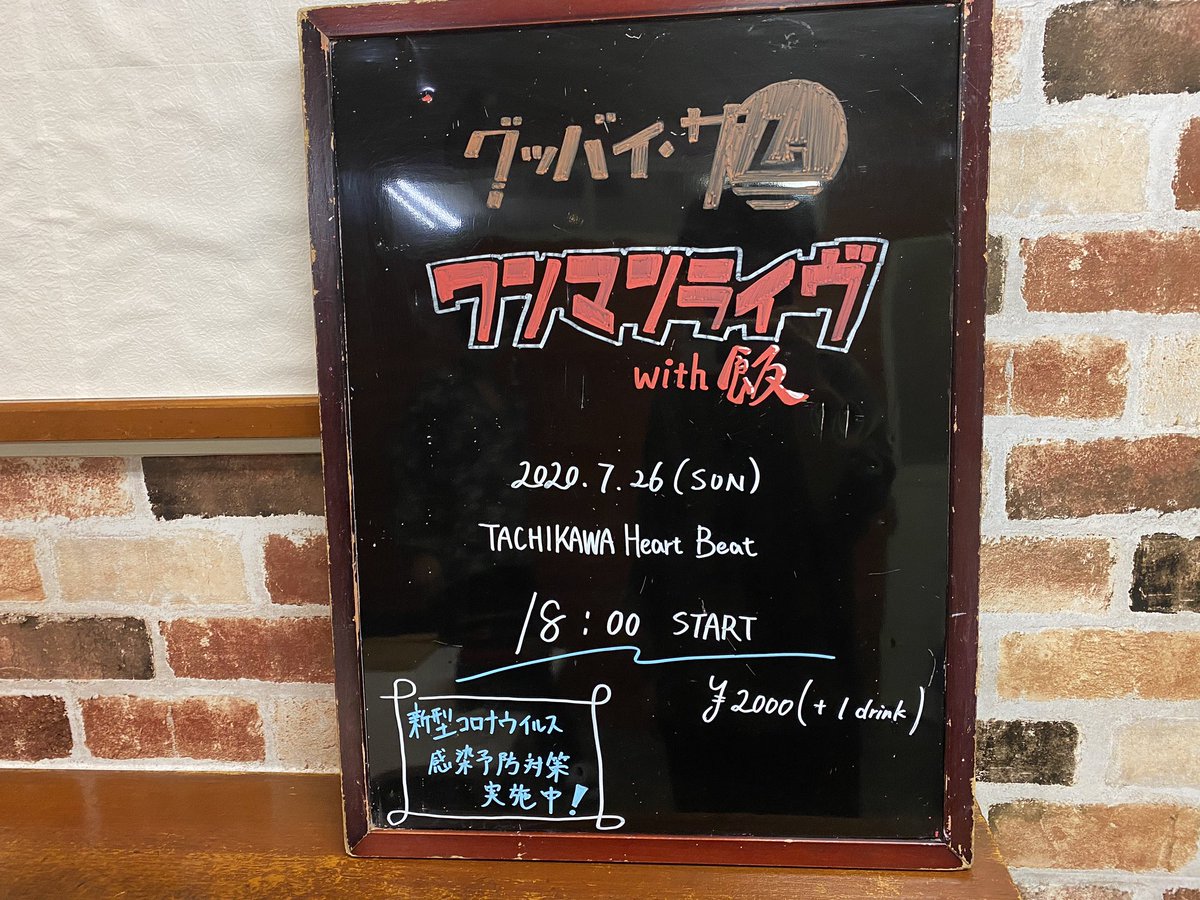 グッバイ・ザ
ワンマンライヴ
with 飯
2020.7.26(SUN)
TACHIKAWA Heart Beat
18:00 START
¥2000(+1drink)
新型コロナウイルス
感染予防対策
実施中!